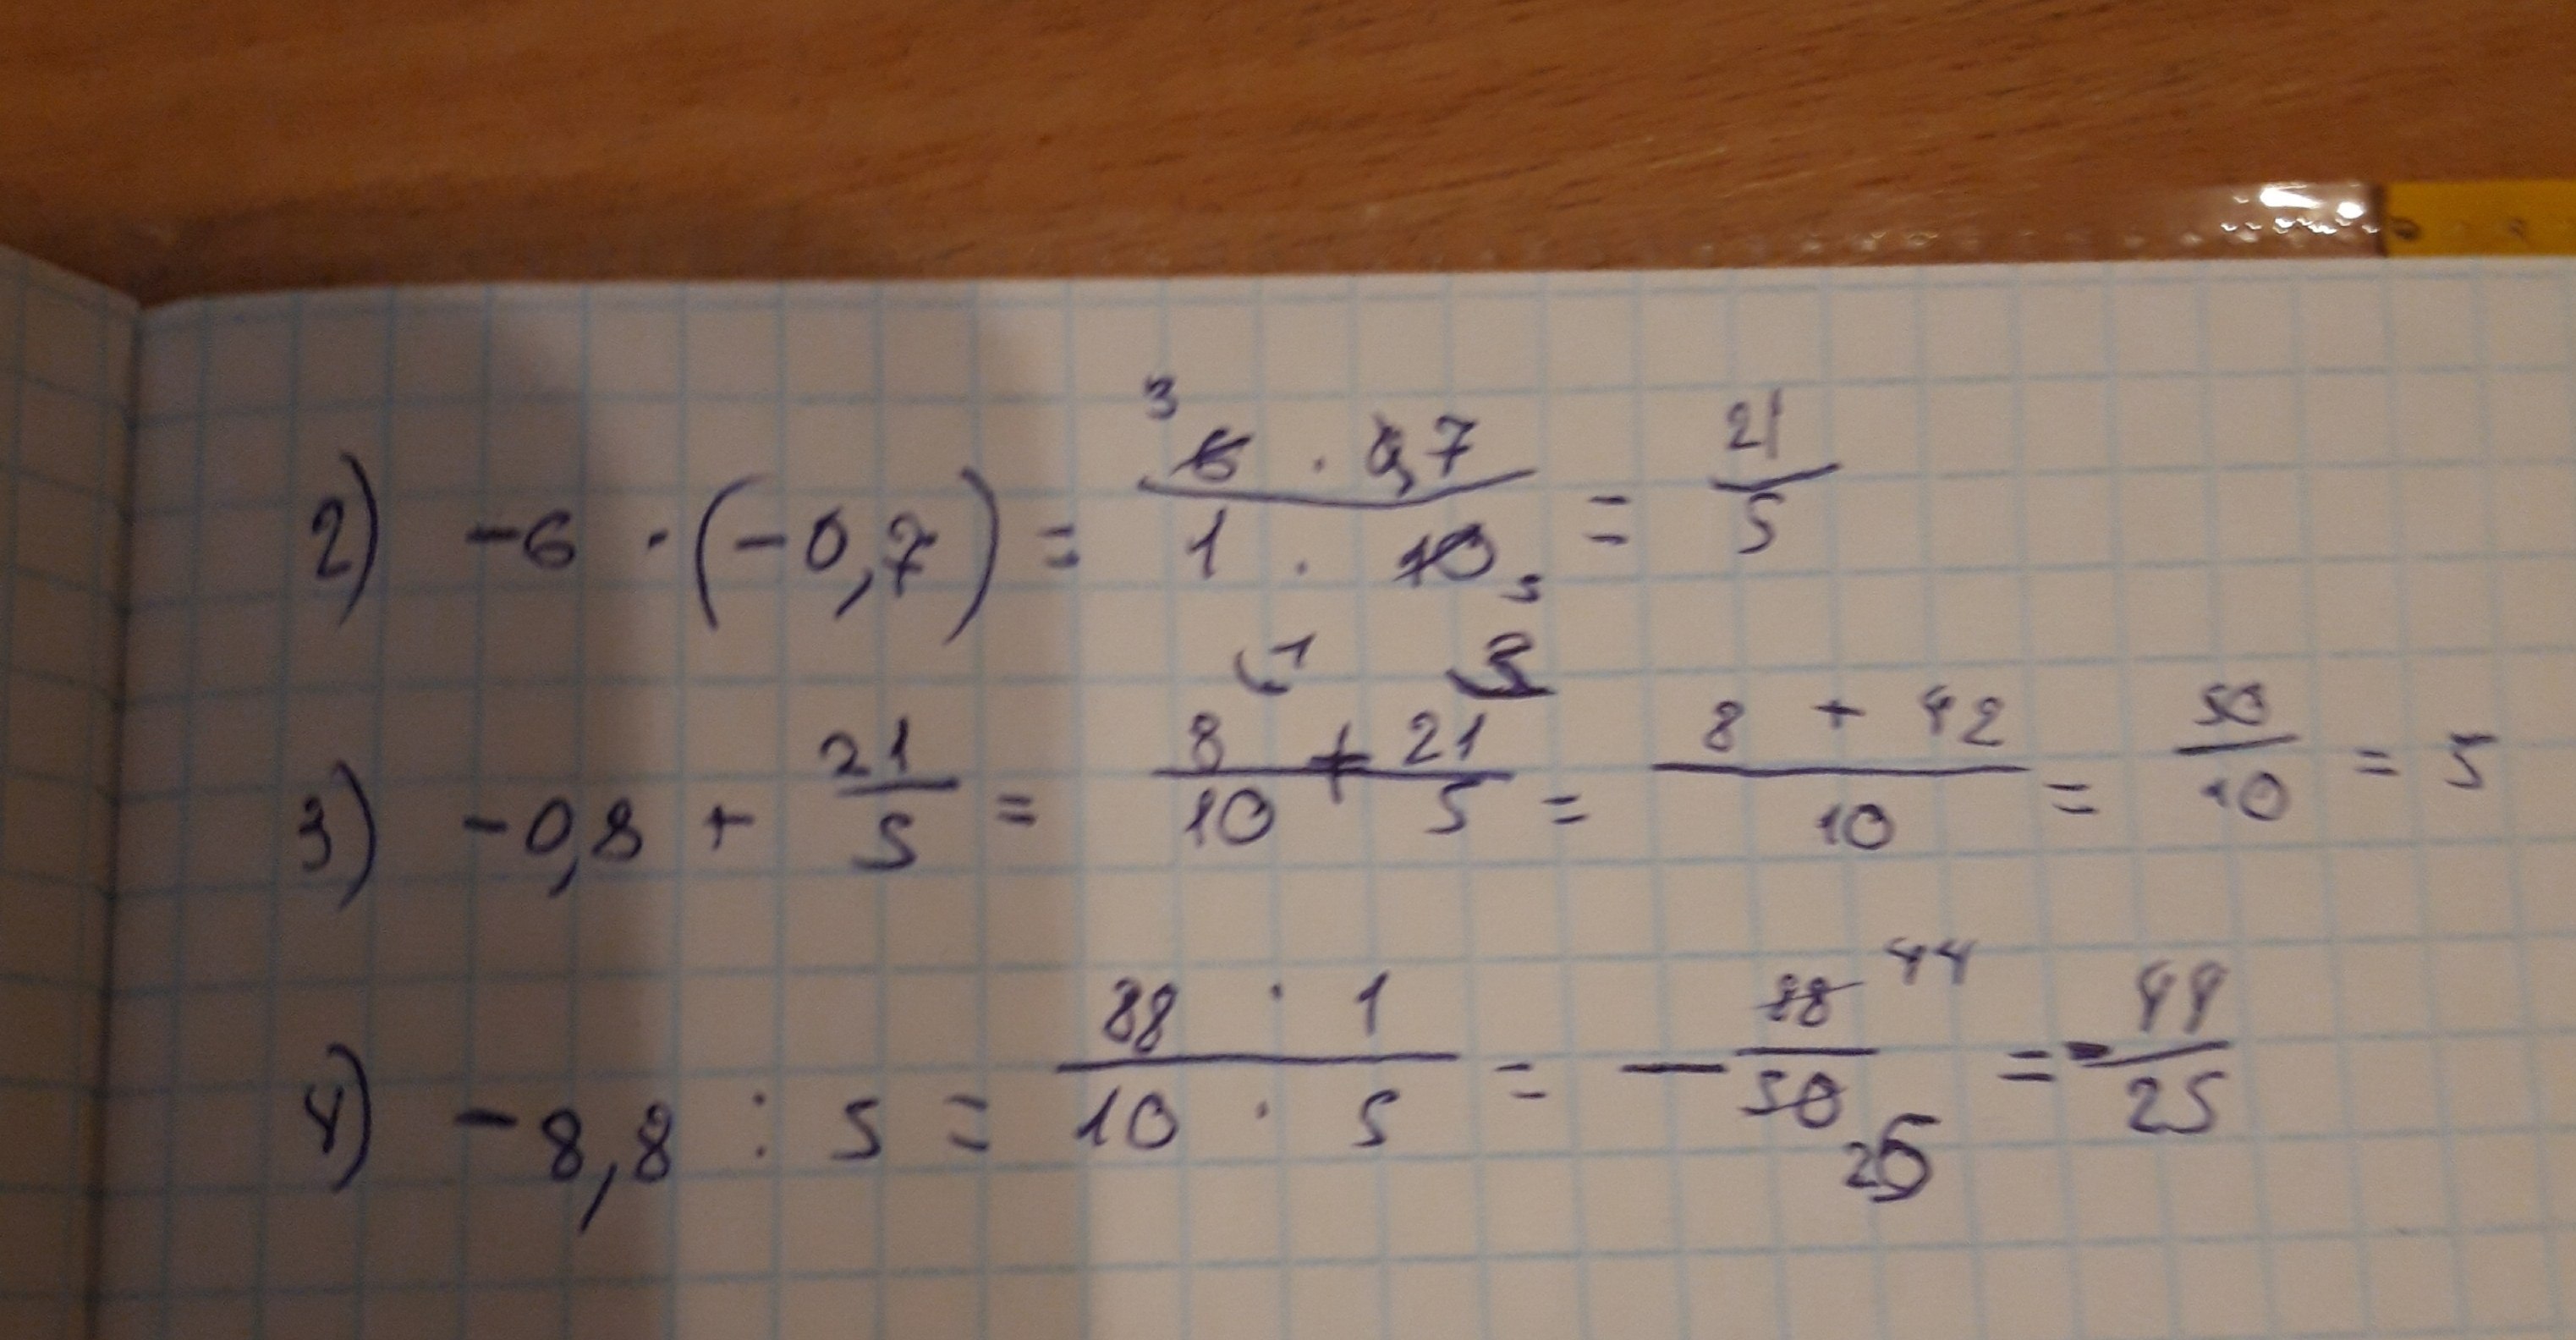 2) -6 · (-0,7) = 6 · 7 / 1 · 10 = 21/5
3) -0,8 + 21/5 = 8/10 + 21/5 = 8 + 42 / 10 = 50/10 = 5
4) -8,8 : 5 = 88 · 1 / 10 · 5 = - 88/50 = - 44/25